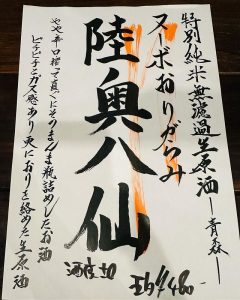 特別純米無濾過生原酒―青森―
ヌーボおりがらみ
陸奥八仙
やや辛口搾って直ぐにそのまんま瓶詰めしたお酒
ピチピチとガス感あり更におりを絡めた生原酒